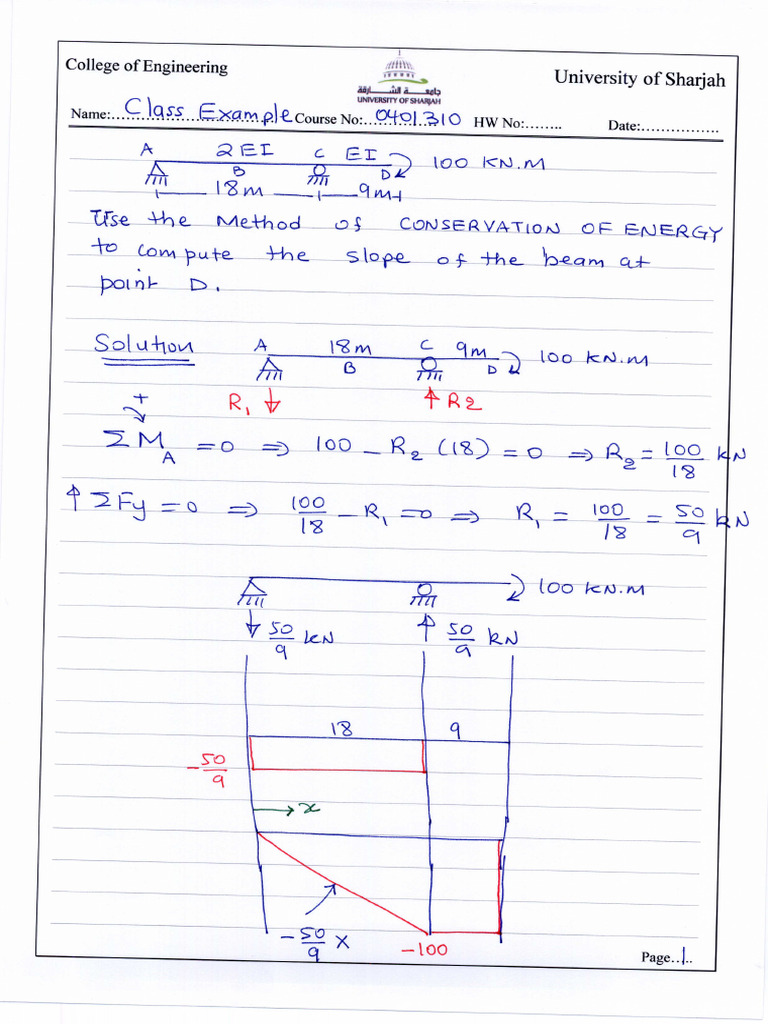 College of Engineering
جامعة الشارقة
UNIVERSITY OF SHARJAH
University of Sharjah
Name:....Class Example Course No:....0401310 HW No:........ Date:................
A 2EI C EI 100 KN.M
B D
18m 9m
Use the Method of CONSERVATION OF ENERGY
to compute the slope of the beam at
point D.
Solution A 18m C 9m 100 KN.M
B D
R1 ↓ ↑ R2
+
ΣM_A = 0 ⇒ 100 - R2 (18) = 0 ⇒ R2 = 100/18 KN
↑ ΣFy = 0 ⇒ 100/18 - R1 = 0 ⇒ R1 = 100/18 = 50/9 kN
100 KN.M
↓ 50/9 kN ↑ 50/9 kN
18 9
-50/9
→ x
-50/9 x
-100
Page...1..